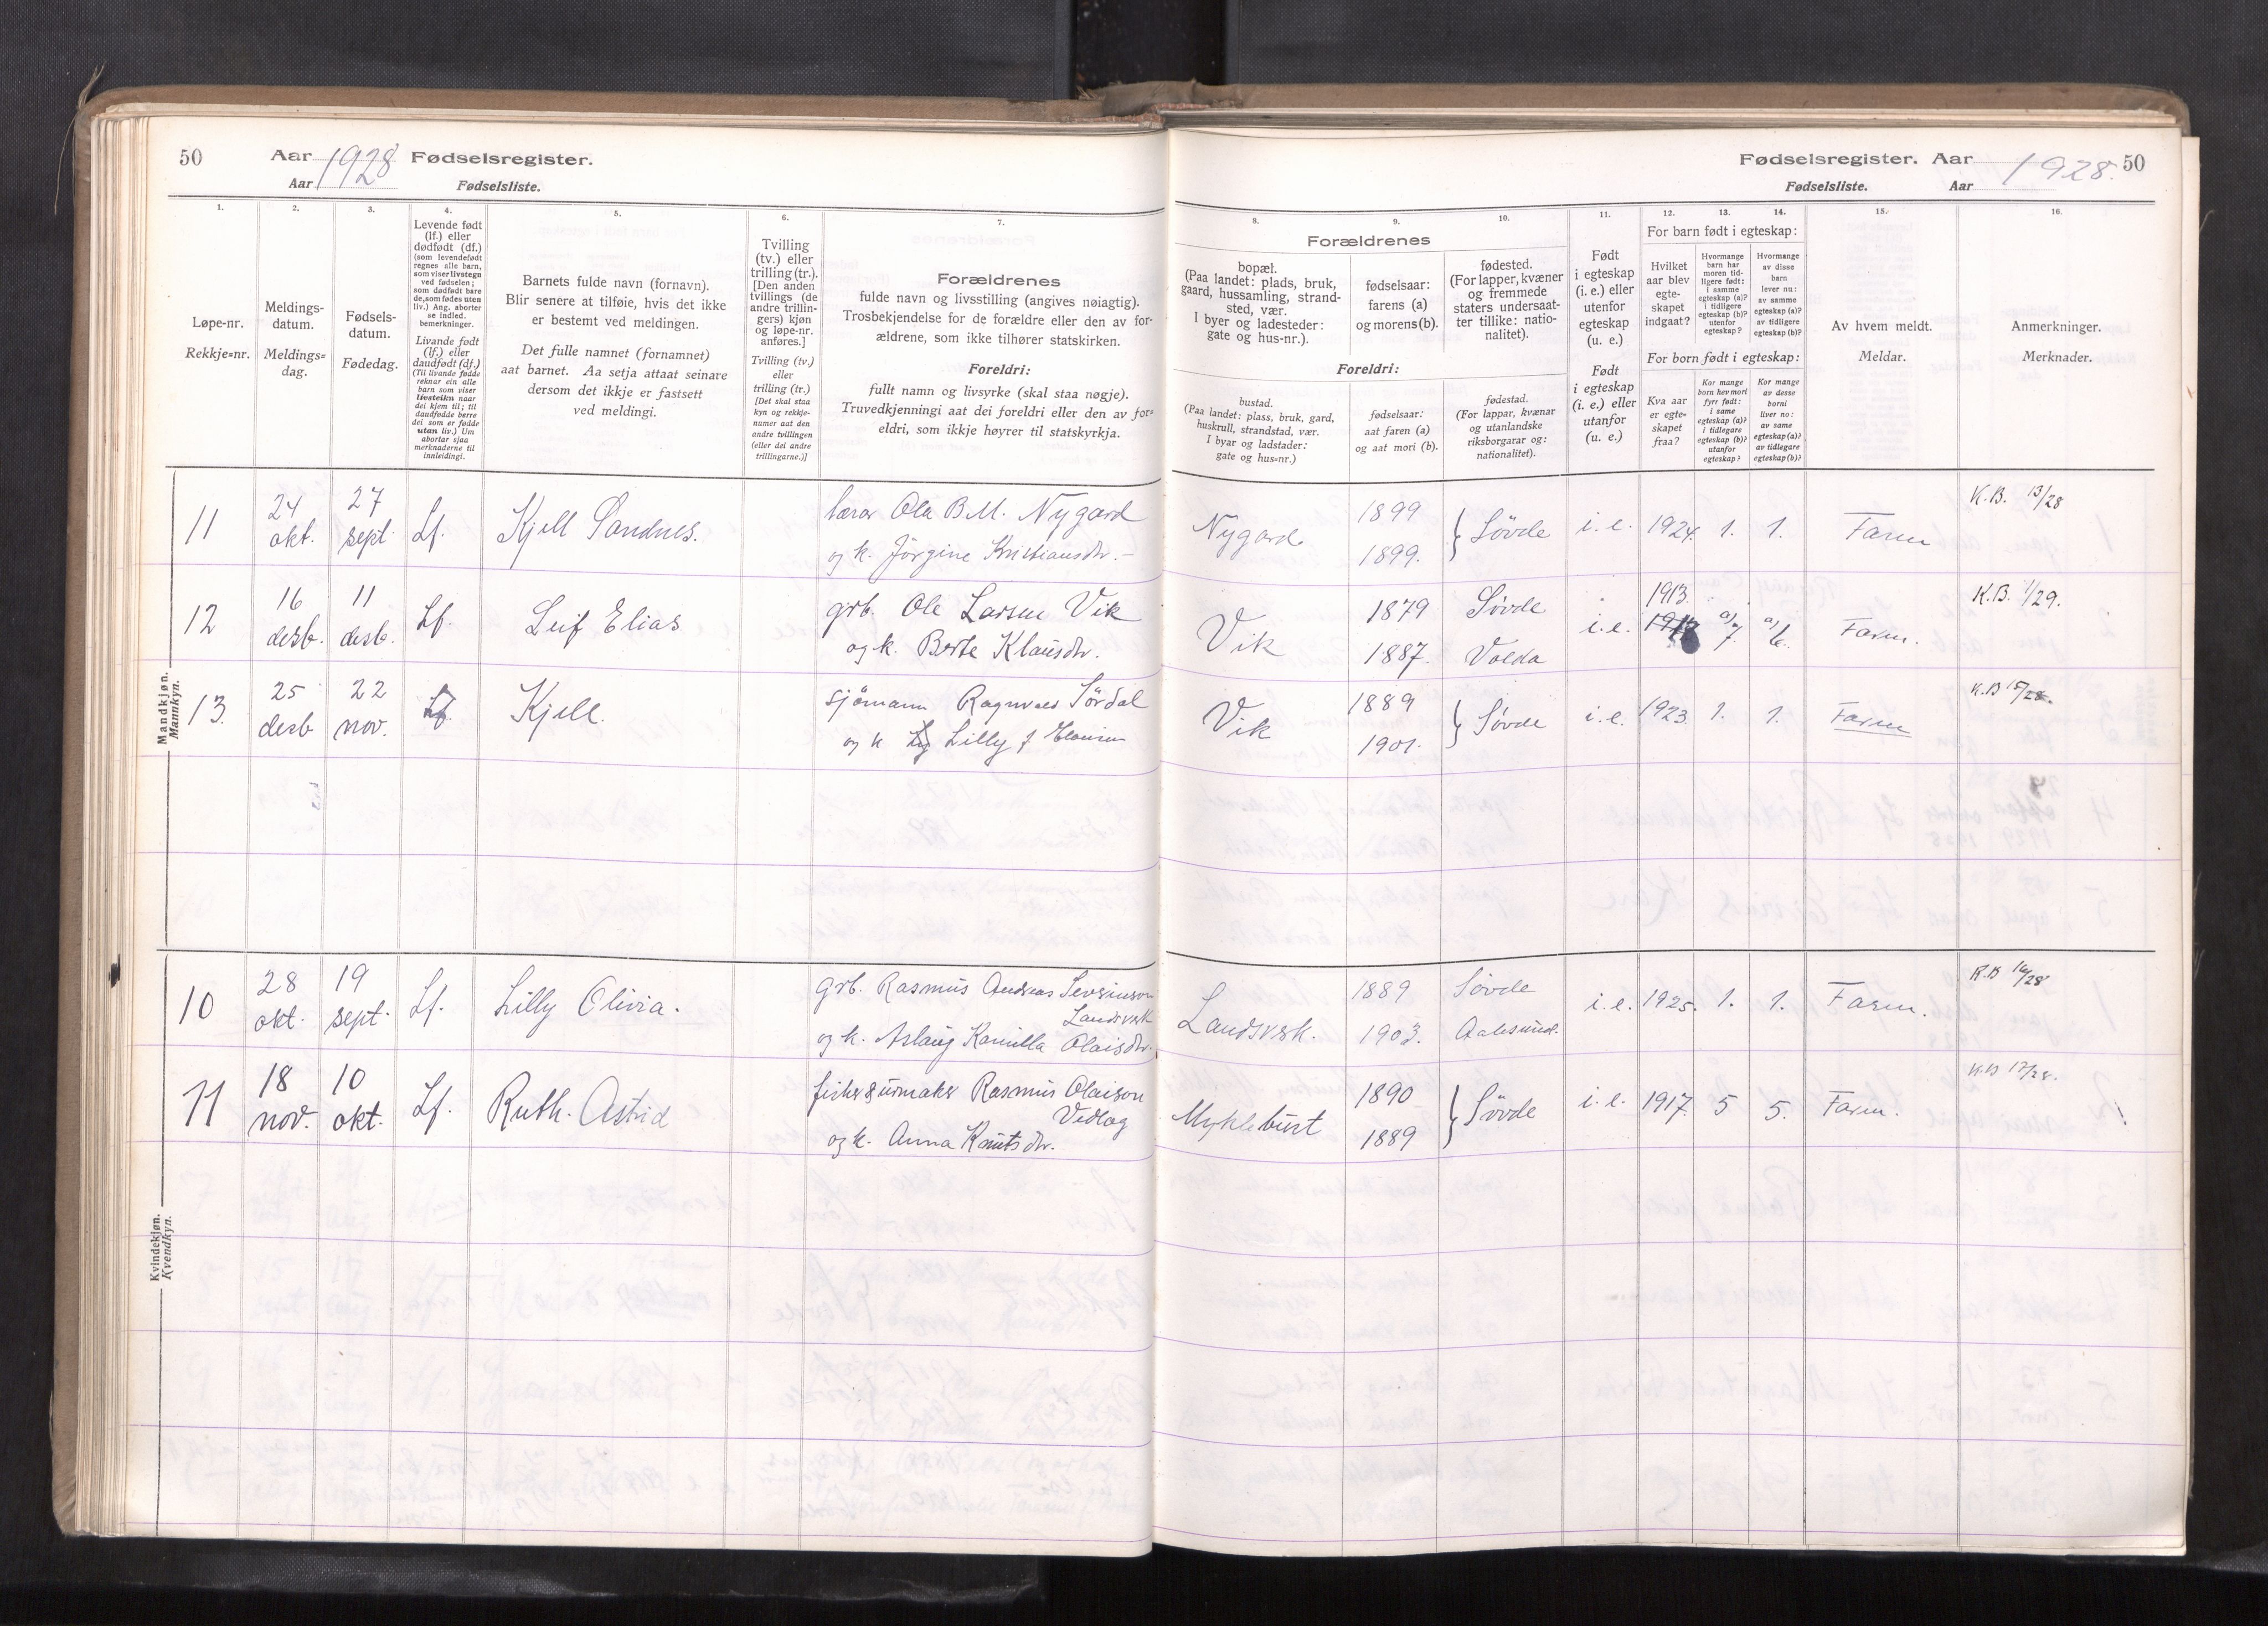 50 Aar 1928 Fødselsregister.
Aar Fødselsliste.
Fødselsregister. Aar 1928. 50
Fødselsliste. Aar
1.
Løpe-nr.
Rekkje=nr.
2.
Meldings-
datum.
Meldings=
dag.
3.
Fødsels-
datum.
Fødedag.
4.
Levende født
(lf.) eller
dødfødt (df.)
(som levendefødt
regnes alle barn,
som viser livstegn
ved fødselen;
som dødfødt bare
de, som fødes uten
liv.) Ang. aborter
se indled.
bemerkninger.
Livande født
(lf.) eller
daudfødt (df.)
(Til livande fødde
reknar ein alle
barn som viser
livsteikn naar
dei kjem til; til
daudfødde berre
dei som er fødde
utan liv.) Um
abortar sjaa
merknaderne til
innleidingi.
5.
Barnets fulde navn (fornavn).
Blir senere at tilføie, hvis det ikke
er bestemt ved meldingen.
Det fulle namnet (fornamnet)
aat barnet. Aa setja attaat seinare
dersom det ikkje er fastsett
ved meldingi.
6.
Tvilling
(tv.) eller
trilling (tr.).
[Den anden
tvillings (de
andre trillin-
gers) kjøn
og løpe-nr.
anføres.]
Tvilling (tv.)
eller
trilling (tr.)
[Det skal staa
kyn og rekkje-
numer aat den
andre tvillingen
(eller dei andre
trillingarne.)]
7.
Forældrenes
fulde navn og livsstilling (angives nøiagtig).
Trosbekjendelse for de forældre eller den av for-
ældrene, som ikke tilhører statskirken.
Foreldri:
fullt namn og livsyrke (skal staa nøgje).
Truvedkjenningi aat dei foreldri eller den av for=
eldri, som ikkje høyrer til statskyrkja.
Forældrenes
8.
bopæl.
(Paa landet: plads, bruk,
gaard, hussamling, strand-
sted, vær.
I byer og ladesteder:
gate og hus-nr.).
9.
fødselsaar:
farens (a)
og morens (b).
10.
fødested.
(For lapper, kvæner
og fremmede
staters undersaat-
ter tillike: natio-
nalitet).
Foreldri:
bustad.
(Paa landet: plass, bruk, gard,
huskrull, strandstad, vær.
I byar og ladstader:
gate og hus=nr.)
fødselsaar:
aat faren (a)
og aat mori (b).
fødestad.
(For lappar, kvænar
og utanlandske
riksborgarar og:
nationalitet).
11.
Født
i egteskap
(i. e.) eller
utenfor
egteskap
(u. e.)
Født
i egteskap
(i. e.) eller
utanfor
(u. e.)
12. 13. 14.
For barn født i egteskap:
Hvilket
aar blev
egte-
skapet
indgaat?
Hvormange
barn har
moren tid-
ligere født:
i samme
egteskap (a)?
i tidligere
egteskap (b)?
utenfor
egteskap?
Hvormange
av disse
barn
lever nu:
av samme
egteskap (a)?
av tidligere
egteskap (b)?
For born født i egteskap:
Kva aar
er egte-
skapet
fraa?
Kor mange
born hev mori
fyrr født:
i same
egteskap (a)?
i tidlegare
egteskap (b)?
utanfor
egteskap?
Kor mange
av desse
borni
liver no:
av same
egteskap (a)?
av tidlegare
egteskap (b)?
15.
Av hvem meldt.
Meldar.
16.
Anmerkninger.
Merknader.
Mandkjøn.
Mannkyn.
11 24 okt. 27 sept. Lf. Kjell Sandnes. lærar Ola B.M. Nygard
og k. Jörgine Kristiansdtr.
Nygard 1899 1899. } Sövde i. e. 1924. 1. 1. Faren K.B. 13/28
12 16 desb. 11 desb. Lf. Leif Elias grb. Ole Larsen Vik
og k. Berte Klausdtr.
Vik 1879 1887. Sövde Volda i. e. 1913. a) 7. a) 6. Faren. K.B. 1/29.
13. 25 desb 22 nov. Lf. Kjell. sjömann Ragnvald Sördal
og k Lilly f
Vik 1889 1901. } Sövde i. e. 1923. 1. 1. Faren K.B 15/28.
Kvindekjøn.
Kvendkyn.
10 28 okt. 19 sept. Lf. Lilly Olivia. grb. Rasmus Andreas Severinson
Landsverk
og k. Aslaug Kamilla Olaisdtr.
Landsverk. 1889 1903. Sövde Aalesund. i. e. 1925. 1. 1. Faren. K.B 16/28
11 18 nov. 10 okt. Lf. Ruth. Astrid fisker & urmaker Rasmus Olaison
Vedlog
og k. Anna Knutsdtr.
Myklebust 1890 1889 } Sövde i. e. 1917. 5 5. Faren. K.B 17/28.